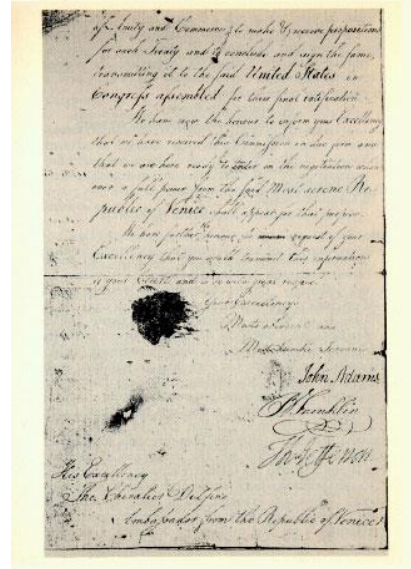 of Amity and Commerce, & to make & receive propositions
for such Treaty and to conclude and sign the same,
transmitting it to the said United States in
Congress assembled for their final ratification.
We have now the honour to inform your Excellency
that we have received this Commission in due form and
that we are here ready to enter on the negotiation
a full power from the said Most serene Re-
public of Venice shall appear for that purpose.
We have further honour to request of your
Excellency that you would transmit this information
to your Court, and
Your Excellency's
Most obedient and
Most humble Servants
John Adams
B Franklin
Th Jefferson
His Excellency
The Chevalier Delfino
Embassador from the Republic of Venice